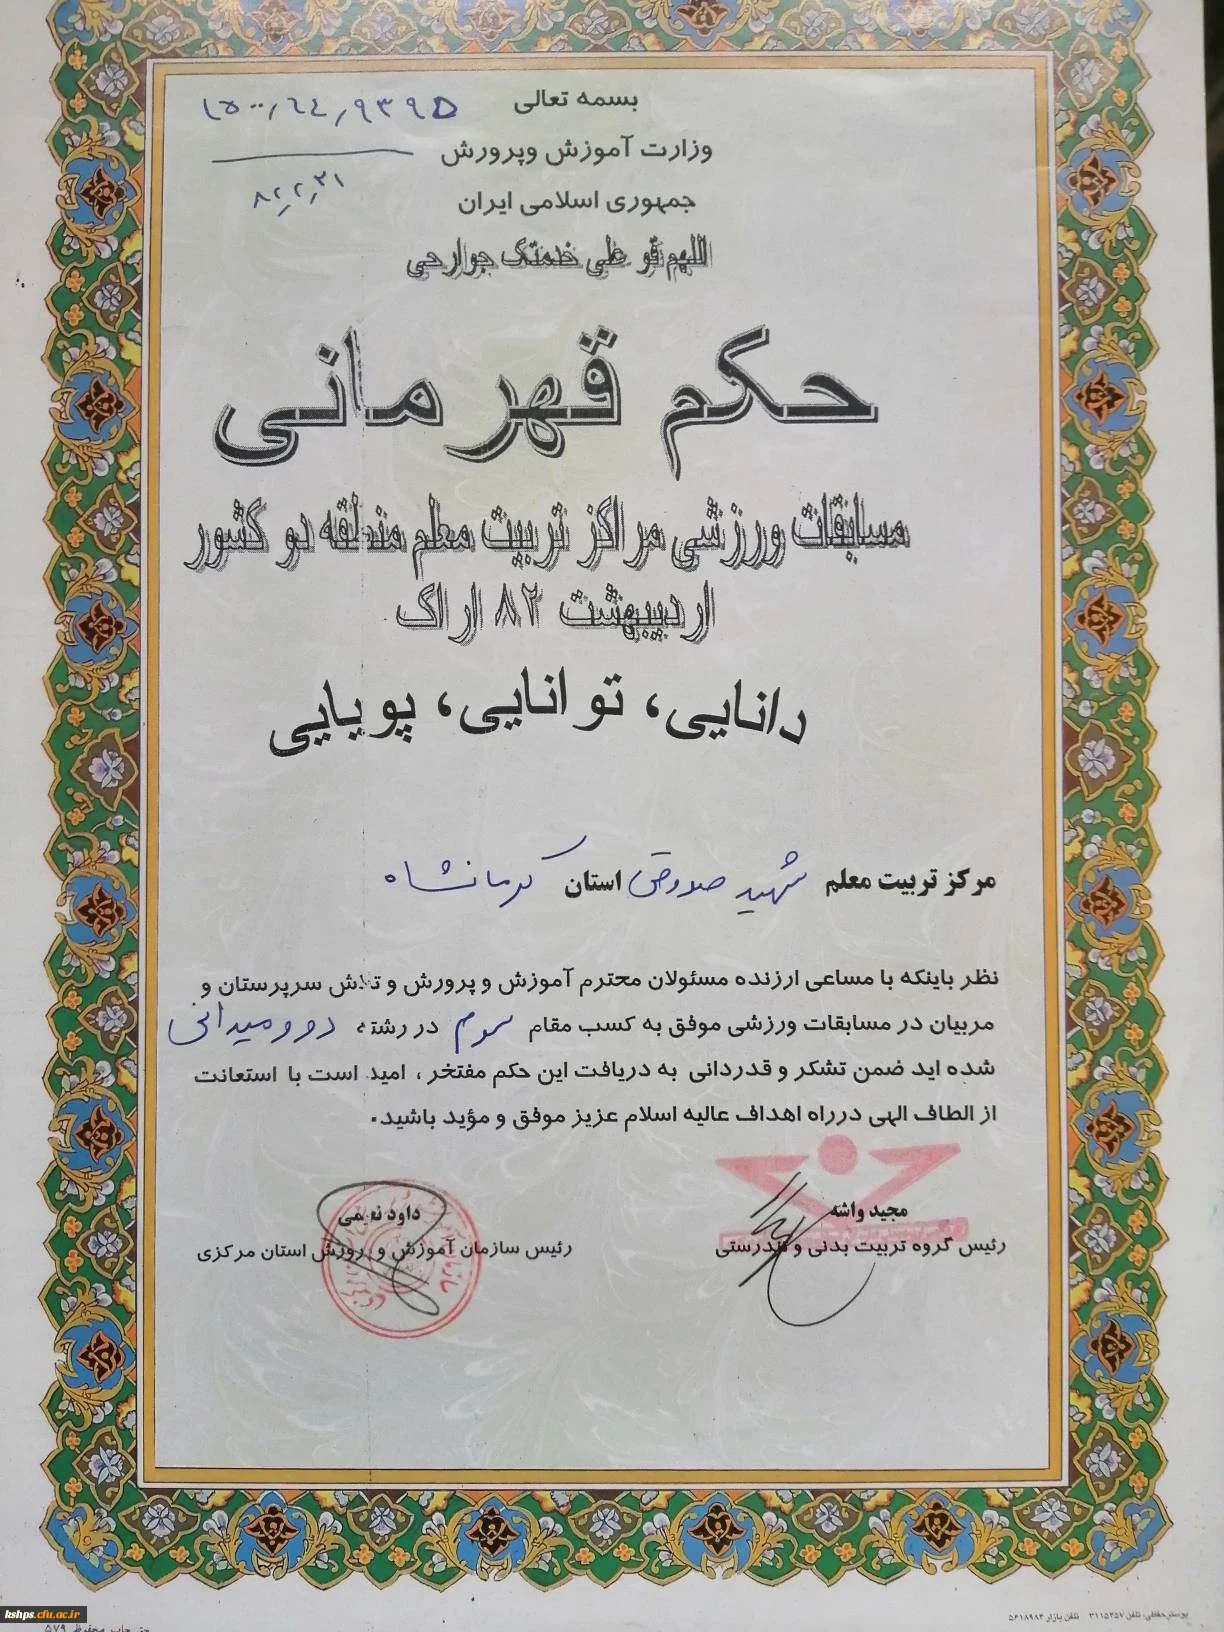 بسمه تعالی
۱۵۰۰/۶۴/۹۳۹۵
وزارت آموزش وپرورش
۸۲/۲/۳۱
جمهوری اسلامی ایران
اللهم قو علی خدمتک جوارحی
حکم قهرمانی
مسابقات ورزشی مراکز تربیت معلم منطقه دو کشور
اردیبهشت ۸۲ اراک
دانایی، توانایی، پویایی
مرکز تربیت معلم شهید صدوقی استان کرمانشاه
نظر باینکه با مساعی ارزنده مسئولان محترم آموزش و پرورش و تلاش سرپرستان و
مربیان در مسابقات ورزشی موفق به کسب مقام سوم در رشته دوومیدانی
شده اید ضمن تشکر و قدردانی به دریافت این حکم مفتخر ، امید است با استعانت
از الطاف الهی درراه اهداف عالیه اسلام عزیز موفق و مؤید باشید.
مجید واشه
رئیس گروه تربیت بدنی و تندرستی
داود نعیمی
رئیس سازمان آموزش و پرورش استان مرکزی
kshps.cfu.ac.ir
حق چاپ محفوظ ۵۷۹
پوستر حقظی، تلفن ۳۱۱۵۳۵۷ تلفن بازار ۵۶۱۸۹۸۳